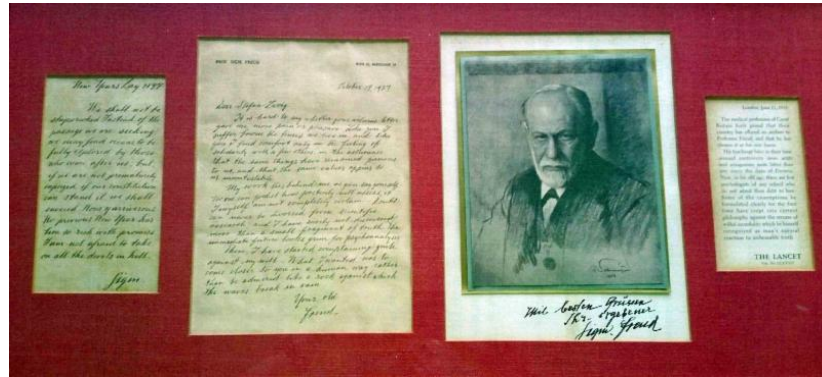 New Years Day 1888
We shall not be
shipwrecked. Instead of the
passage we are seeking
we may find means to be
fully explored by those
who come after us. But
if we are not prematurely
if our constitution
can stand it we shall
succeed. Nous y arriverons.
No previous New Year has
been so rich with promise
I am not afraid to take
on all the devils in hell.
Sigm
PROF. SIGM. FREUD
October 17, 1937
Dear Stefan Zweig
It is hard to say whether your welcome letter
gave me more pain or pleasure. Like you I
suffer from the times we live in and like
you I find comfort only in the feeling of
solidarity with a few others in the
that the same things have remained precious
to us, and that the same values appear to
us incontestable.
My work lies behind me as you say yourself.
No one can predict how posterity will assess it.
I myself am not completely certain. Doubt
can never be divorced from scientific
research, and I have surely not discovered
more than a small fragment of truth. The
immediate future looks grim for psychoanalysis
there, I have started complaining quite
against my will. What I wanted was to
come closer to you in a human way rather
than be admired like a rock against which
the waves break in vain
Your old
Freud.
Mit besten Grüssen
Ihr ergebener
Sigm. Freud
London June 11,
The medical profession of Great
Britain feels proud that their
country has offered an asylum to
Professor Freud, and that he has
chosen it as his new home.
His teachings have in their time
aroused controversy more acute
and antagonism more bitter than
any since the days of Darwin.
Now, in his old age, there are few
psychologists of any school who
do not admit their debt to him.
Some of the conceptions he
formulated clearly for the first
time have crept into current
philosophy against the stream of
wilful incredulity which he himself
recognised as man's natural
reaction to unbearable truth.
THE LANCET